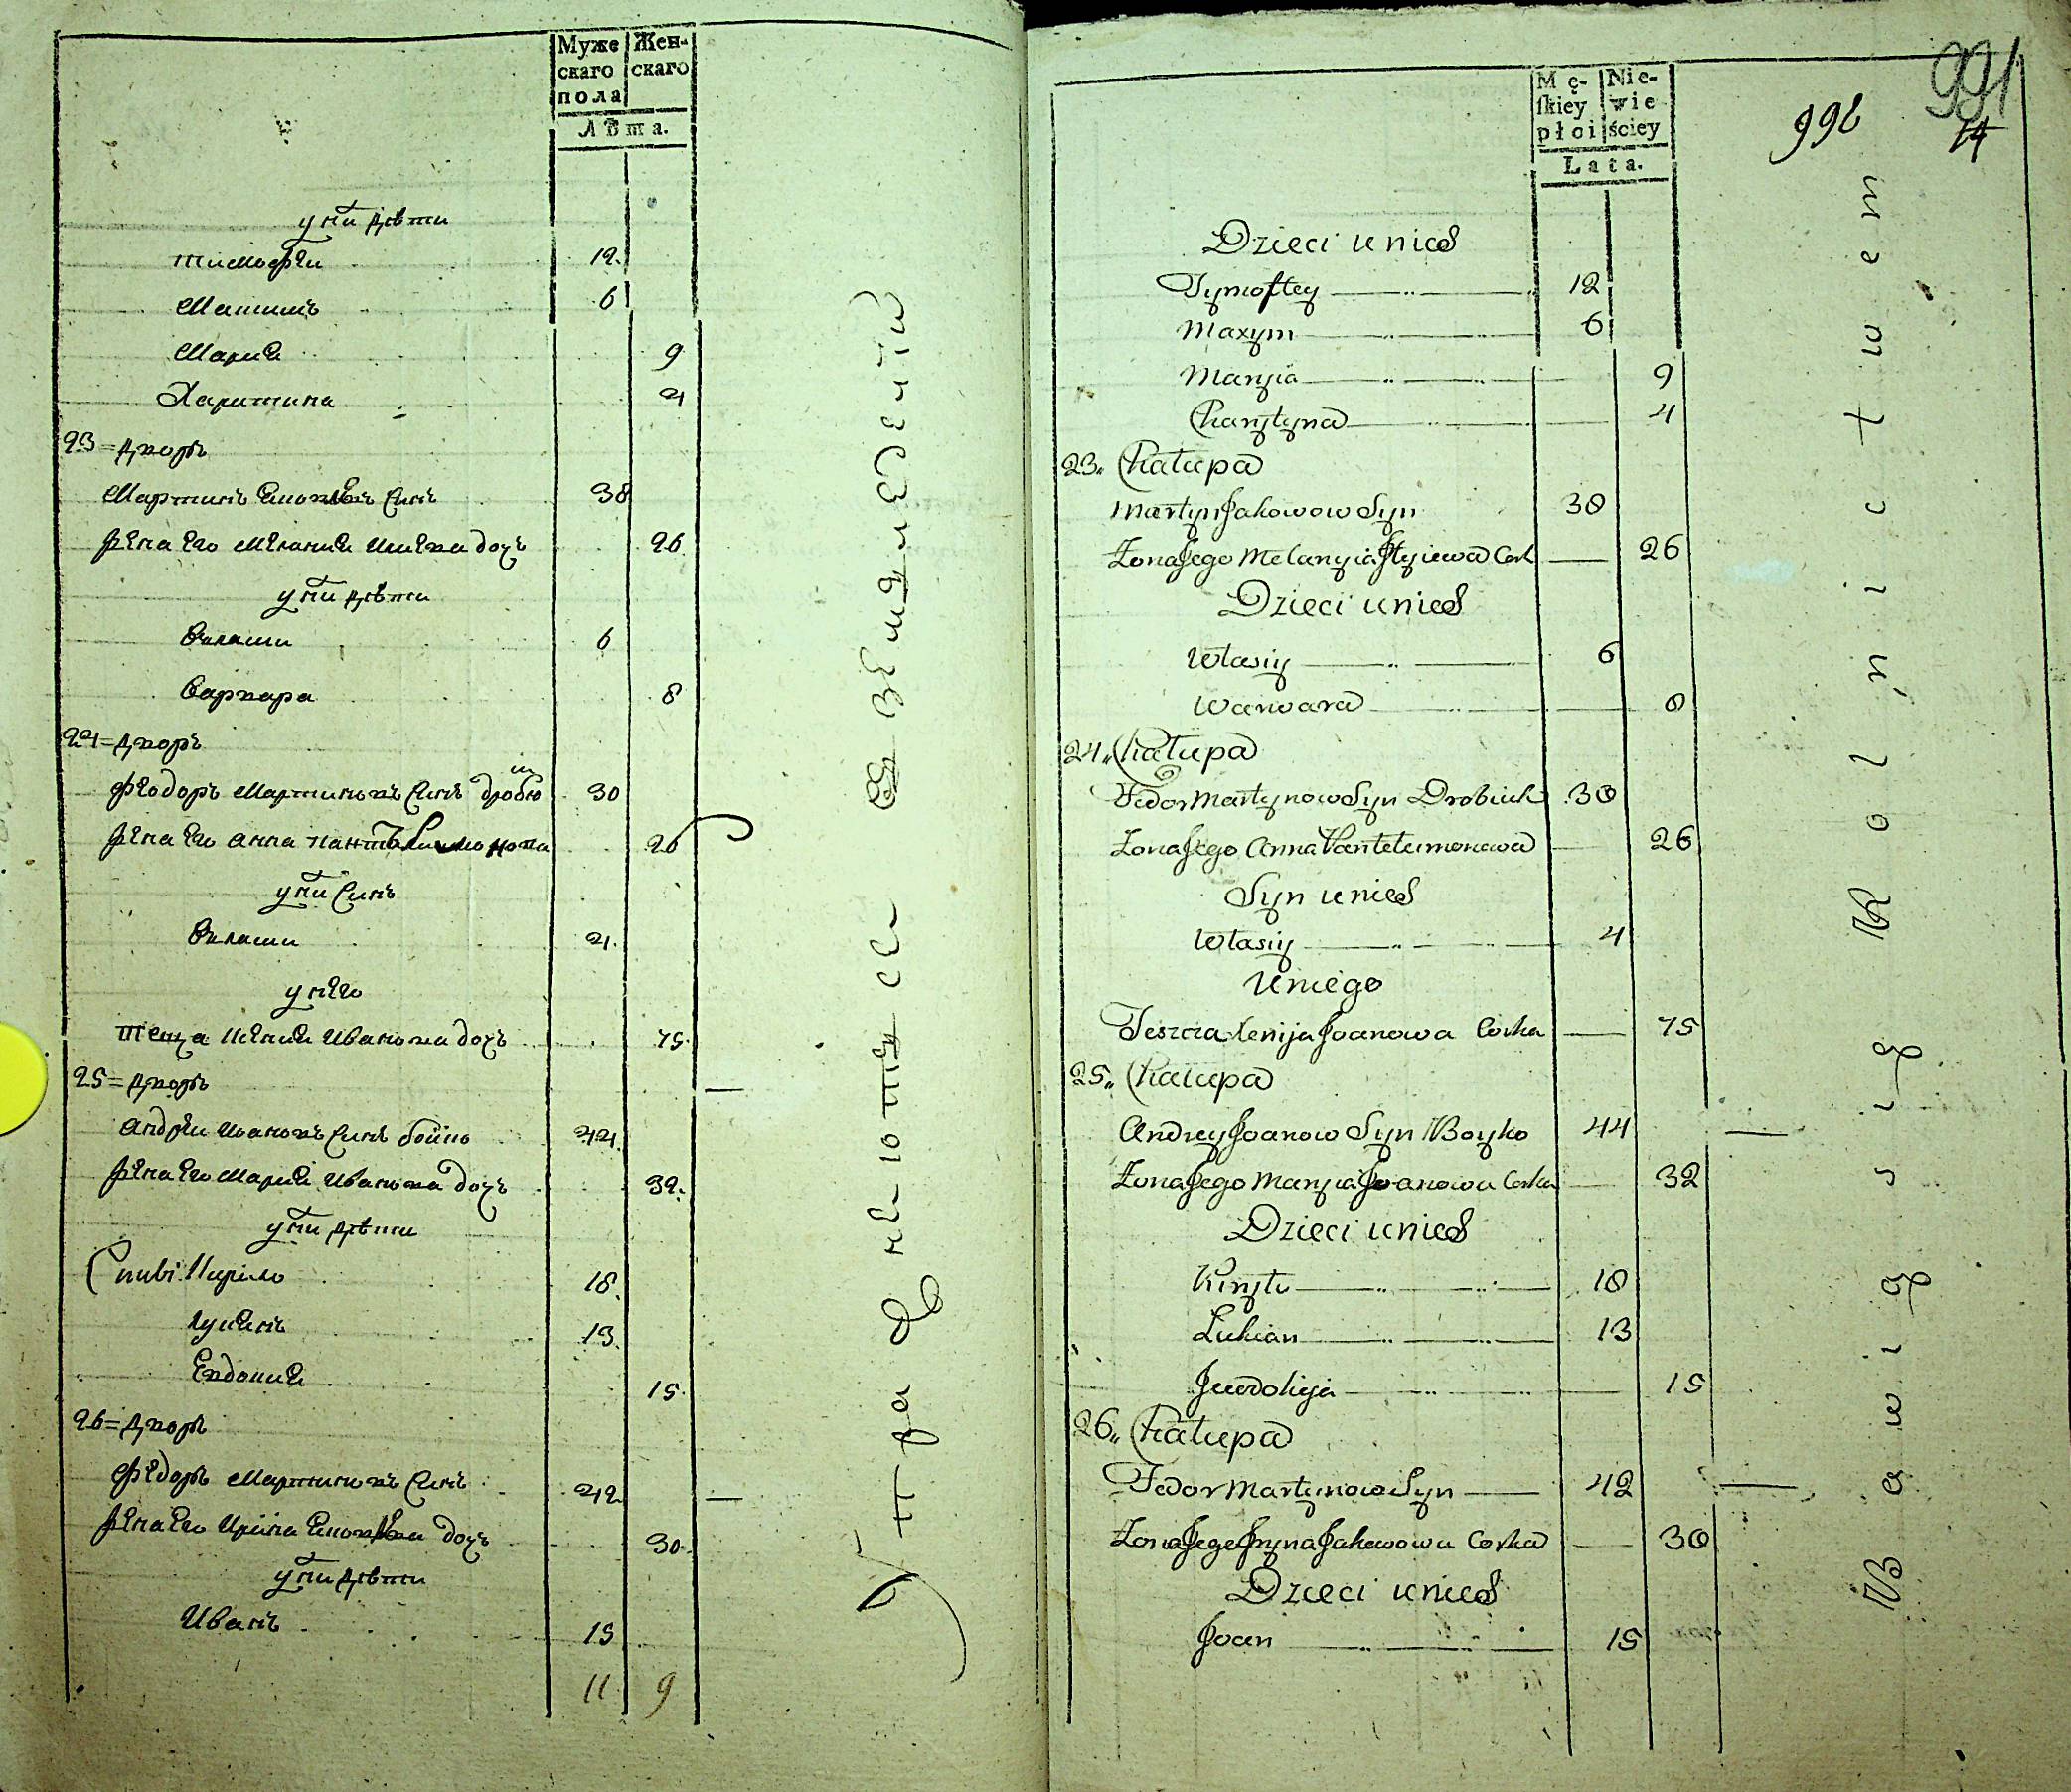 Муже Жен-
скаго скаго
пола
Лѣта.
у них дѣти
Тимофѣй 12.
Максимъ 6
Мария 9
Харитина 4
23=дворъ
Мартинъ Яковлевъ Синъ 38
Жена Его Мелания Илиева дочь 26
у них дѣти
Власий 6
Варвара 8
24=дворъ
Феодоръ Мартиновъ Синъ дробюк 30
Жена Его Анна Пантелимонова 26
у них Синъ
Власий 4.
у него
Теща Ксения Иванова дочь 75.
25=дворъ
Андрей Ивановъ Синъ бойко 44.
Жена Его Мария Иванова дочь 32.
у них дѣти
Кирило 18.
Лукянъ 13.
Евдокия 15.
26=дворъ
Федоръ Мартиновъ Синъ 42
Жена Его Ирина Яковлева дочь 30.
у них дѣти
Иванъ 15
11 9
Упражнеются в земледелии
991
992 14
Mę- Nie-
skiey wie
płoi ściey
Lata.
Dzieci u nich
Tymoftey 12
Maxym 6
Maryia 9
Charytyna 4
23„ Chałupa
Martyn Jakowow Syn 38
Żona Jego Melanyia Ilyiewa Cork 26
Dzieci u nich
Własiy 6
Warwara 8
24„ Chałupa
Fedor Martynow Syn Drobiuk 30
Żona Jego Anna Panteleimonowa 26
Syn u nich
Własiy 4
U niego
Teszcza Xenija Joanowa Corka 75
25„ Chałupa
Andrey Joanow Syn Boyko 44
Żona Jego Maryia Joanowa Corka 32
Dzieci u nich
Kiryło 18
Łukian 13
Jewdokija 15
26„ Chałupa
Fedor Martynow Syn 42
Żona Jego Iryna Jakowowa Corka 30
Dzieci u nich
Joan 15
Bawią się Rolnictwem